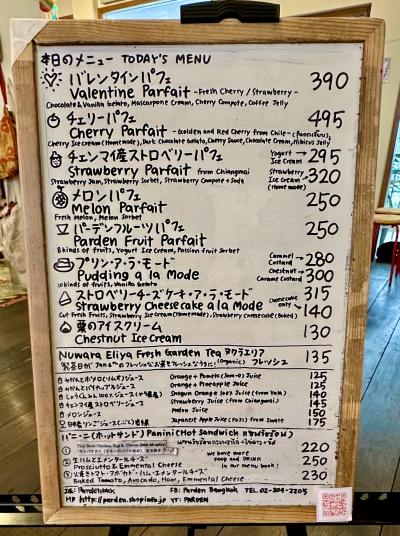 本日のメニュー TODAY'S MENU
バレンタインパフェ
Valentine Parfait -Fresh Cherry / Strawberry- 390
Chocolate & Vanilla Gelato, Mascarpone Cream, Cherry Compote, Coffee Jelly
チェリーパフェ
Cherry Parfait -Golden and Red Cherry from Chile- 495
Cherry Ice Cream (Homemade), Dark Chocolate Gelato, Cherry Sauce, Chocolate Cream, Hibiscus Jelly
チェンマイ産ストロベリーパフェ Yogurt Ice Cream → 295
Strawberry Parfait from Chiangmai Strawberry Ice Cream (Homemade) → 320
Strawberry Jam, Strawberry Sorbet, Strawberry Compote + Soda
メロンパフェ
Melon Parfait 250
Fresh Melon, Melon Sorbet
パーデンフルーツパフェ
Parden Fruit Parfait 250
8 kinds of fruits, Yogurt Ice Cream, Passion fruit Sorbet
プリン・ア・ラ・モード Caramel Custard → 280
Pudding a la Mode Chestnut Caramel Custard → 300
10 kinds of fruits, Vanilla Gelato
ストロベリーチーズケーキ・ア・ラ・モード 315
Strawberry Cheesecake a la Mode Cheesecake only → 140
Cut Fresh Fruits, Strawberry Ice Cream (Homemade), Strawberry Cheesecake (Baked)
栗のアイスクリーム
Chestnut Ice Cream 130
Nuwara Eliya Fresh Garden Tea ヌワラエリア 135
(Organic) フレッシュ
みかんとポメロ(ソムオ)ジュース Orange + Pomelo (Som-o) Juice 125
みかんとパイナップルジュース Orange + Pineapple Juice 125
しょうくんみかん100%ジュース(ヤラ県産) Shogun Orange 100% Juice (from Yala) 140
チェンマイ産ストロベリージュース Strawberry Juice (from Chiangmai) 145
メロンジュース Melon Juice 150
日本産りんごジュース Japanese Apple Juice from Iwate 175
パニーニ(ホットサンド) Panini (Hot Sandwich แซนด์วิชร้อน)
① 220
② 生ハムとエメンタールチーズ 250
Prosciutto & Emmental Cheese
we have more FOOD and DRINK in our menu book!
③ 焼きトマト・アボカド・ハム・エメンタールチーズ
Baked Tomato, Avocado, Ham, Emmental Cheese 230
IG: Pardenbkk FB: Parden Bangkok TEL. 02-204-2205
HP http://parden.shopinfo.jp YT: PARDEN